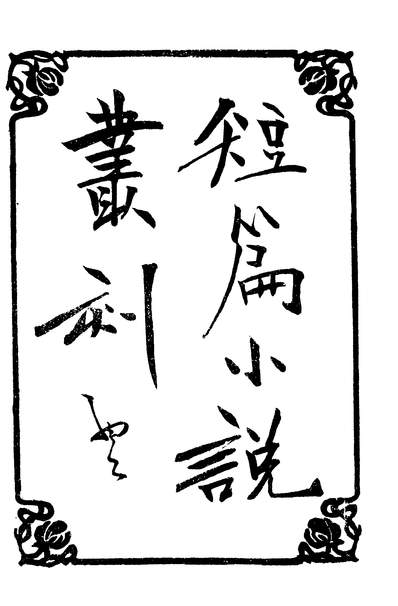 短篇小說
叢刻